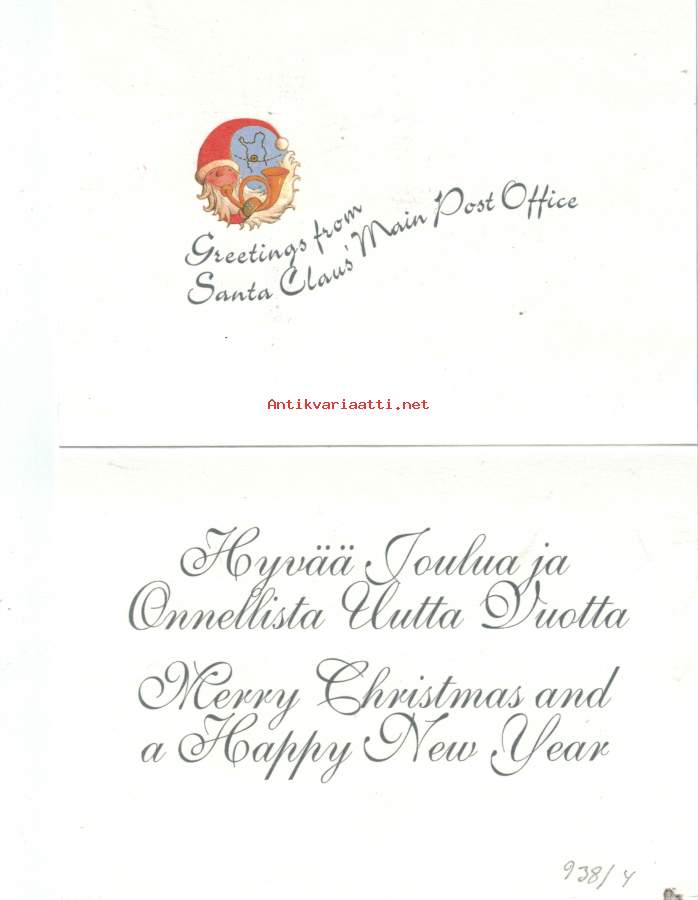 Greetings from
Santa Claus' Main Post Office
Antikvariaatti.net
Hyvää Joulua ja
Onnellista Uutta Vuotta
Merry Christmas and
a Happy New Year
938/4